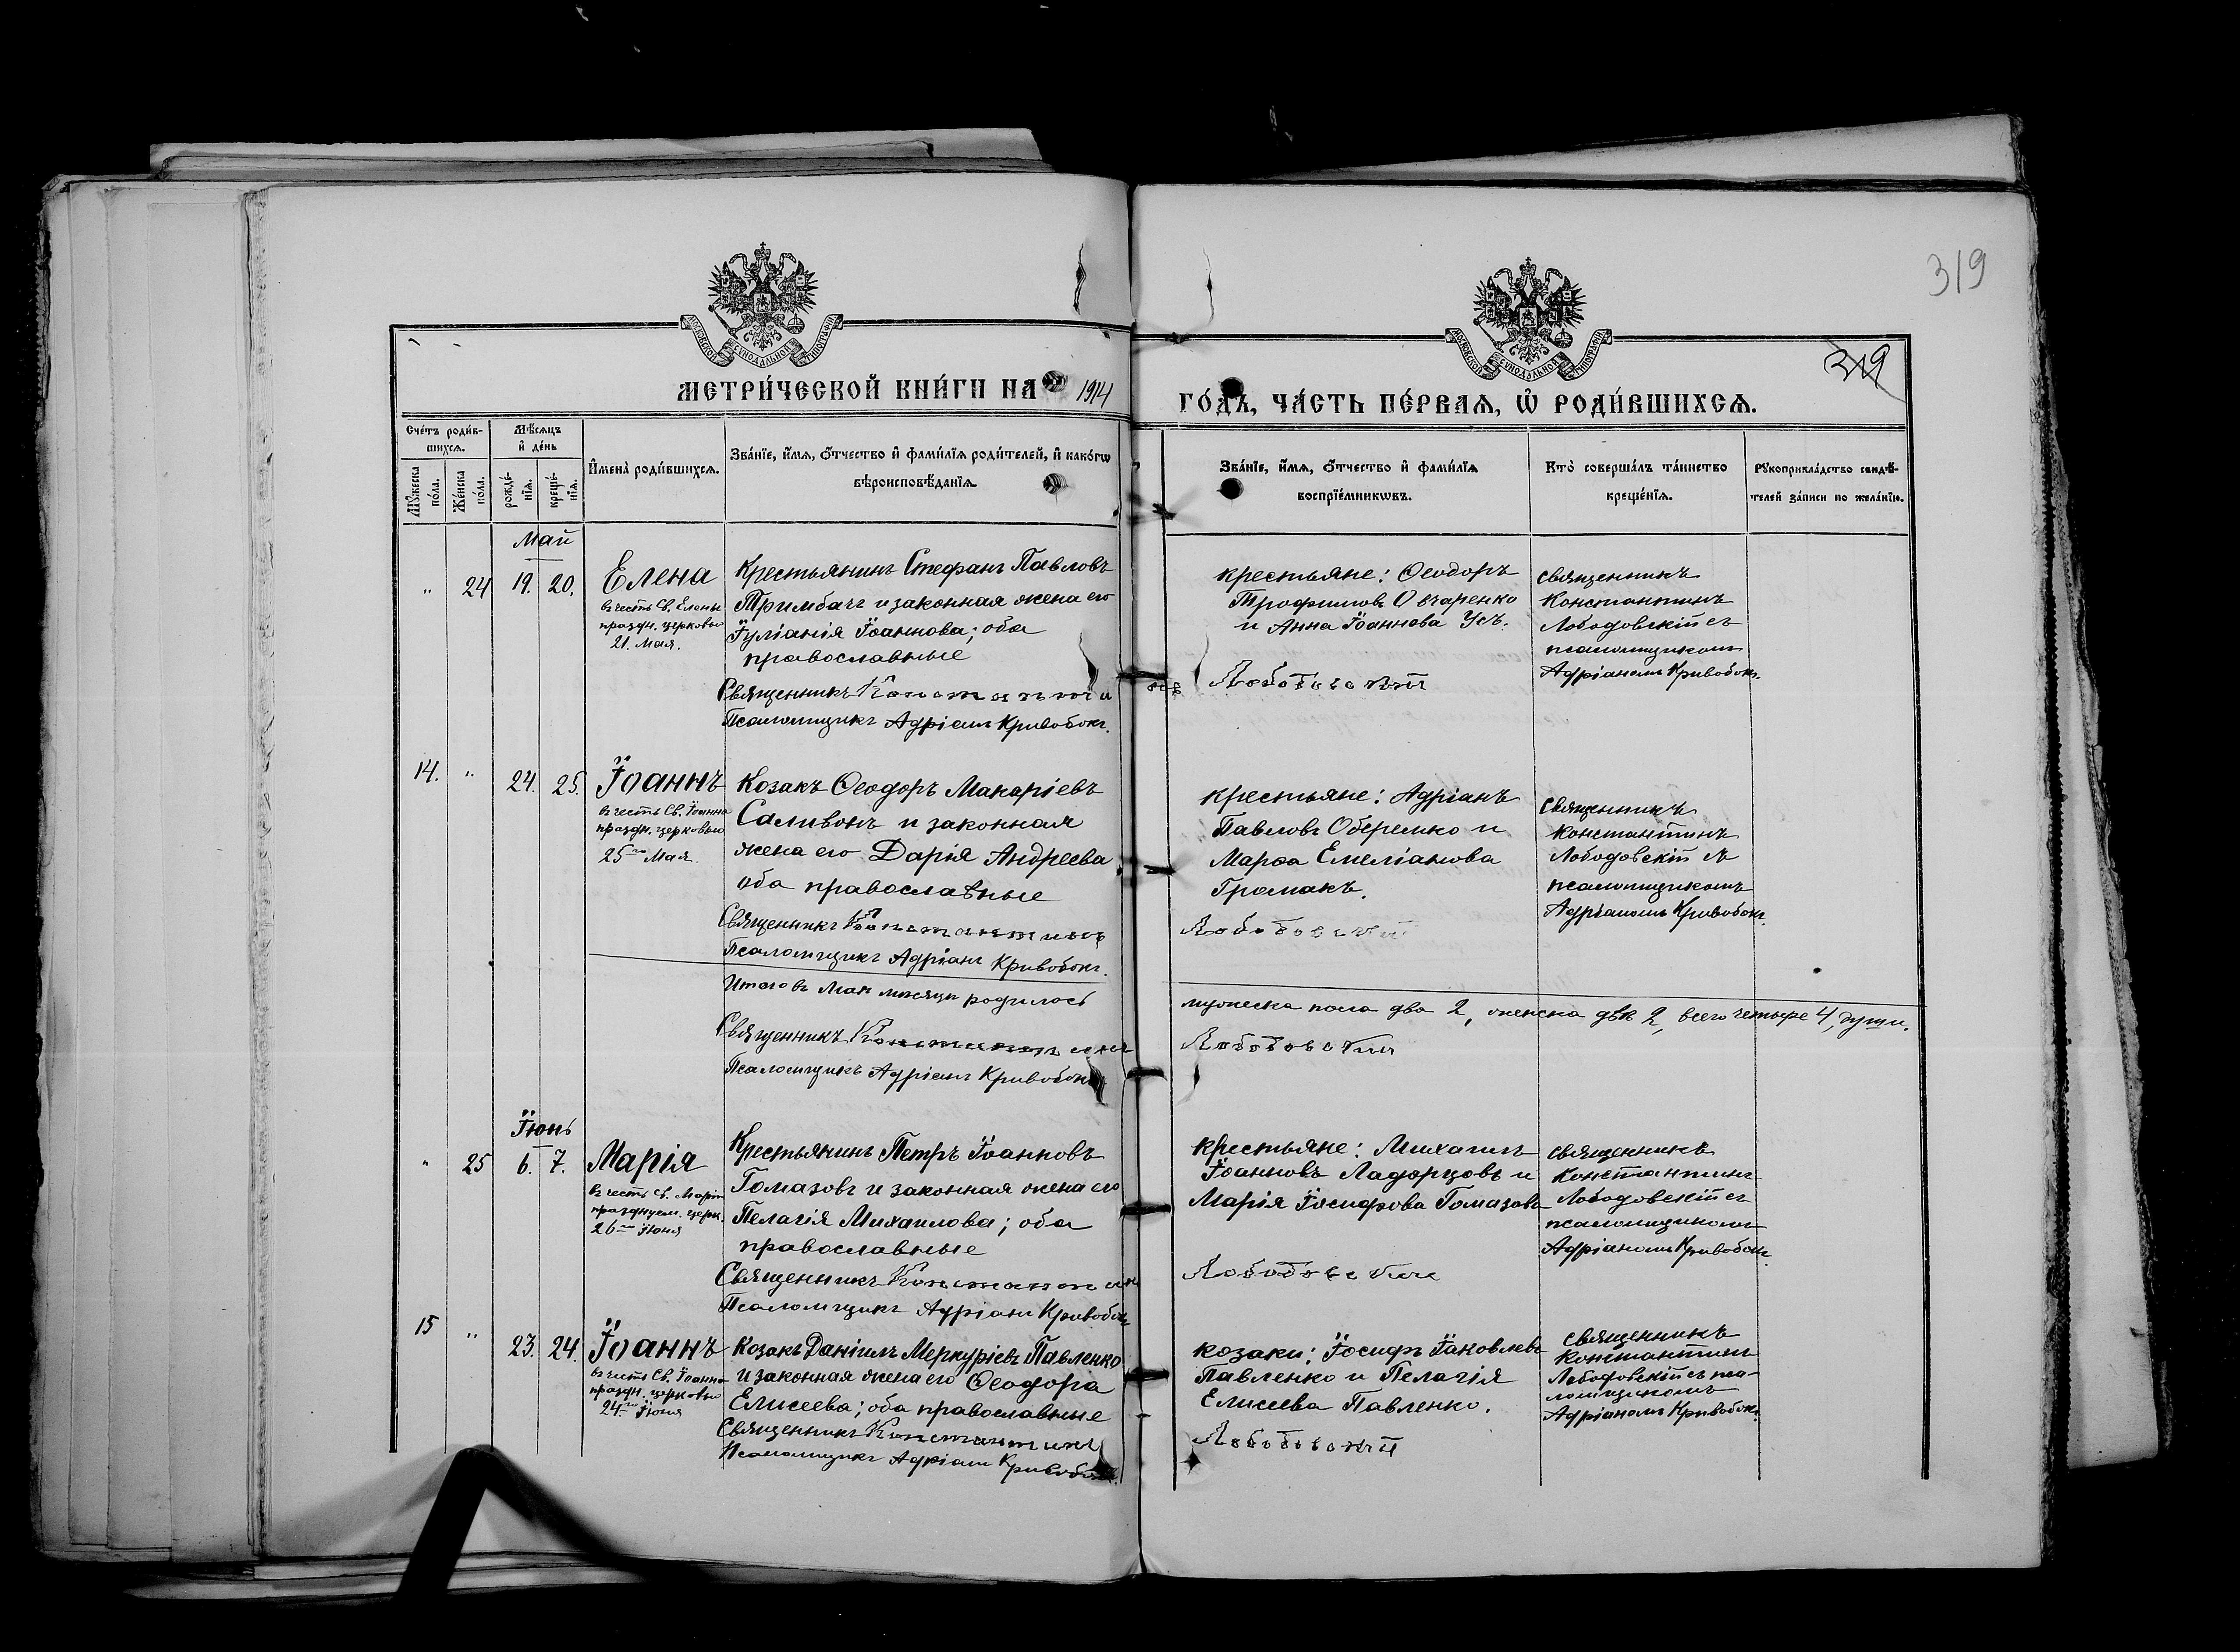 319
319
МОСКОВСКОЙ СѴНОДАЛЬНОЙ ТИПОГРАФІИ
МОСКОВСКОЙ СѴНОДАЛЬНОЙ ТИПОГРАФІИ
МЕТРИ́ЧЕСКОЙ КНИ́ГИ НА 1914
ГО́ДЪ, ЧА́СТЬ ПЕ́РВАѦ, Ѡ҆ РОДИ́ВШИХСѦ.
Сче́тъ роди́в-
шихсѧ.
Мѣ́сѧцъ
и҆ де́нь
Мꙋ́жеска
по́ла.
Же́нска
по́ла.
рожде́-
нїѧ.
креще́-
нїѧ.
И҆мена̀ роди́вшихсѧ.
Зва́нїе, и҆́мѧ, ѻ҆́тчество и҆ фами́лїѧ роди́телей, и҆ како́гѡ
вѣроисповѣ́данїѧ.
Зва́нїе, и҆́мѧ, ѻ҆́тчество и҆ фами́лїѧ
воспрїе́мникѡвъ.
Кто̀ соверша́лъ та́инство
креще́нїѧ.
Рꙋкоприкла́дство свидѣ́-
телей за́писи по жела́нїю.
Май
" 24 19. 20.
Елена
въ честь Св. Елены
праздн. церковью
21. Мая.
Крестьянинъ Стефанъ Павловъ
Тримбачъ и законная жена его
Іуліанія Іоаннова; оба
православные
Священникъ Константинъ
Псаломщикъ Адріанъ Кривобокъ.
крестьяне: Ѳеодоръ
Трофимовъ Овчаренко
и Анна Іоаннова Усъ.
Лободовскій
священникъ
Константинъ
Лободовскій съ
псаломщикомъ
Адріаномъ Кривобокъ.
14. " 24. 25.
Іоаннъ
въ честь Св. Іоанна
праздн. церковью
25го Мая.
Козакъ Ѳеодоръ Макаріевъ
Саливонъ и законная
жена его Дарія Андреева
оба православные
Священникъ Константинъ
Псаломщикъ Адріанъ Кривобокъ.
крестьяне: Адріанъ
Павловъ Оберемко и
Марѳа Емеліанова
Громакъ.
Лободовскій
Священникъ
Константинъ
Лободовскій съ
псаломщикомъ
Адріаномъ Кривобокъ.
Итого въ Маѣ мѣсяцѣ родилось
мужеска пола два 2, женска двѣ 2, всего четыре 4, души.
Священникъ Константинъ
Лободовскій
Псаломщикъ Адріанъ Кривобокъ
Іюнь
" 25 6. 7.
Марія
въ честь Св. Маріи
празднуем. церк.
26го Іюня
Крестьянинъ Петръ Іоанновъ
Гомазовъ и законная жена его
Пелагія Михаилова; оба
православные
Священникъ Константинъ
Псаломщикъ Адріанъ Кривобокъ
крестьяне: Михаилъ
Іоанновъ Ладорцовъ и
Марія Іосифова Гомазова
Лободовскій
священникъ
Константинъ
Лободовскій съ
псаломщикомъ
Адріаномъ Кривобокъ.
15 " 23. 24.
Іоаннъ
въ честь Св. Іоанна
праздн. церковью
24го Іюня
Козакъ Даніилъ Меркуріевъ Павленко
и законная жена его Ѳеодора
Елисеева; оба православные
Священникъ Константинъ
Псаломщикъ Адріанъ Кривобокъ.
козаки: Іосифъ Іаковлевъ
Павленко и Пелагія
Елисеева Павленко.
Лободовскій
священникъ
Константинъ
Лободовскій съ пса-
ломщикомъ
Адріаномъ Кривобокъ.